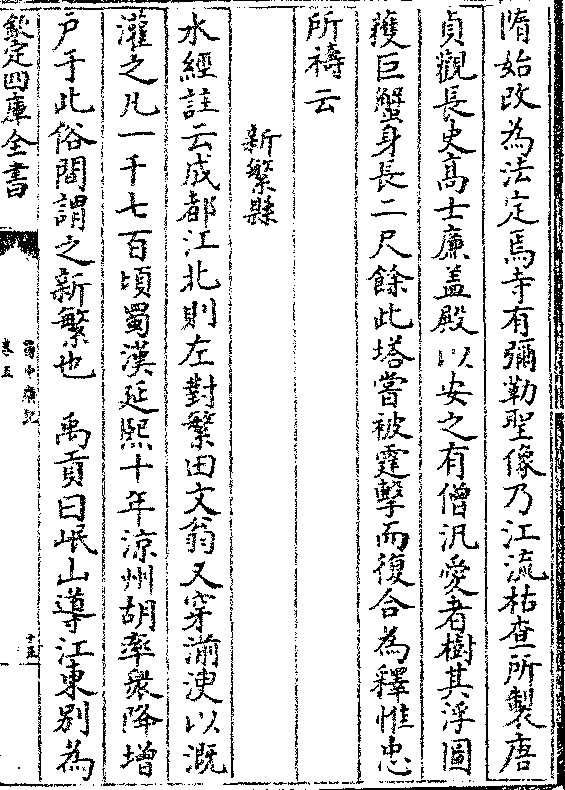 隋始改為法定焉寺有彌勒聖像乃江流枯查所製唐
貞觀長史高士廉盖殿以安之有僧汎愛者樹其浮圖
獲巨蟹身長二尺餘此塔嘗被霆擊而復合為釋惟忠
所禱云
新繁縣
水經註云成都江北則左對繁田文翁又穿湔㳛以溉
灌之凡一千七百頃蜀漢延熙十年涼州胡率衆降增
户于此俗間謂之新繁也 禹貢曰岷山導江東别為
欽定四庫全書
蜀中廣記
卷五
十五